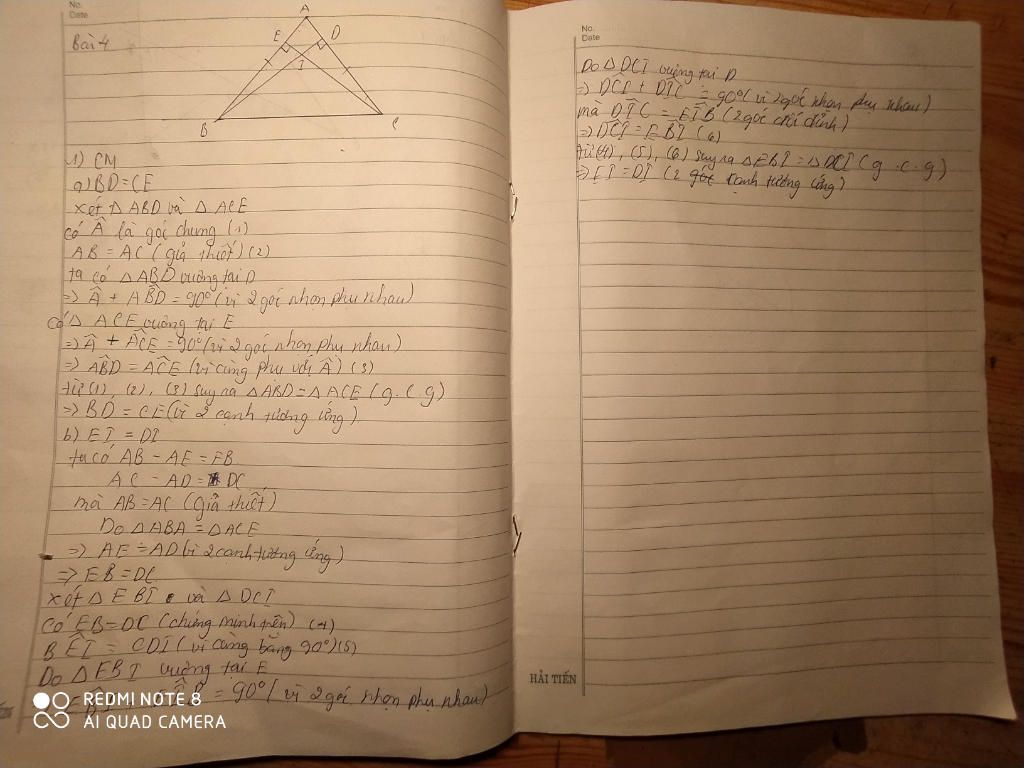 No.
Date
Bài 4
A
E D
I
B C
1) CM
a) BD = CE
xét △ ABD và △ ACE
có Â là góc chung (1)
AB = AC (giả thiết) (2)
ta có △ ABD vuông tại D
=> Â + AB̂D = 90° (vì 2 góc nhọn phụ nhau)
Có △ ACE vuông tại E
=> Â + AĈE = 90° (vì 2 góc nhọn phụ nhau)
=> AB̂D = AĈE (vì cùng phụ với Â) (3)
từ (1), (2), (3) suy ra △ ABD = △ ACE (g.c.g)
=> BD = CE (vì 2 cạnh tương ứng)
b) EI = DI
ta có AB - AE = EB
AC - AD = DC
mà AB = AC (Giả thiết)
Do △ ABA = △ ACE
=> AE = AD (vì 2 cạnh tương ứng)
=> EB = DC
xét △ EBI và △ DCI
Có EB = DC (chứng minh trên) (4)
BÊI = CDI (vì cùng bằng 90°) (5)
Do △ EBI vuông tại E
= 90° (vì 2 góc nhọn phụ nhau)
REDMI NOTE 8
AI QUAD CAMERA
No.
Date
Do △ DCI vuông tại D
=> DĈI + DÎC = 90° (vì 2 góc nhọn phụ nhau)
mà DÎC = EÎB (2 góc đối đỉnh)
=> DĈI = EB̂I (6)
từ (4), (5), (6) suy ra △ EBI = △ DCI (g.c.g)
=> EI = DI (2 góc cạnh tương ứng)
HẢI TIẾN